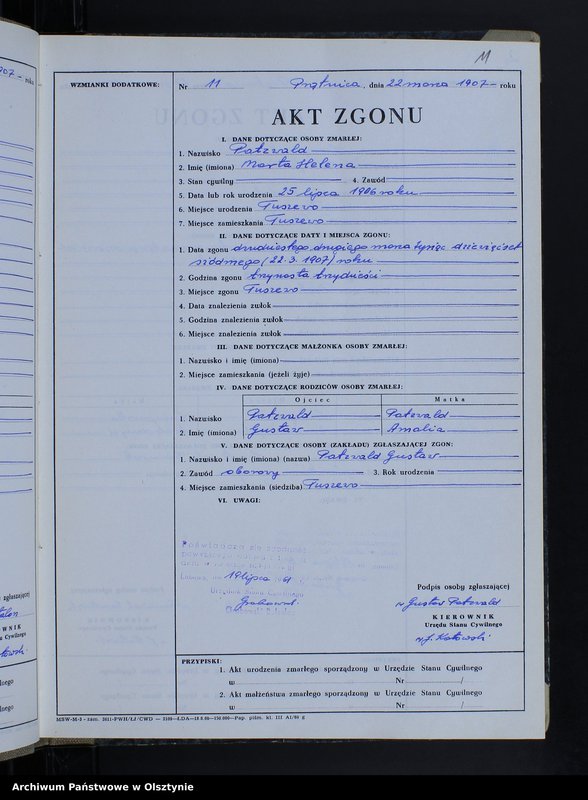 11
WZMIANKI DODATKOWE:
Nr 11 Prątnica, dnia 22 marca 1907 - roku
AKT ZGONU
I. DANE DOTYCZĄCE OSOBY ZMARŁEJ:
1. Nazwisko Patzwald
2. Imię (imiona) Marta Helena
3. Stan cywilny 4. Zawód
5. Data lub rok urodzenia 25 lipca 1906 roku
6. Miejsce urodzenia Tuszewo
7. Miejsce zamieszkania Tuszewo
II. DANE DOTYCZĄCE DATY I MIEJSCA ZGONU:
1. Data zgonu dwudziestego drugiego marca tysiąc dziewięćset
siódmego (22.3.1907) roku
2. Godzina zgonu trzynasta trzydzieści
3. Miejsce zgonu Tuszewo
4. Data znalezienia zwłok
5. Godzina znalezienia zwłok
6. Miejsce znalezienia zwłok
III. DANE DOTYCZĄCE MAŁŻONKA OSOBY ZMARŁEJ:
1. Nazwisko i imię (imiona)
2. Miejsce zamieszkania (jeżeli żyje)
IV. DANE DOTYCZĄCE RODZICÓW OSOBY ZMARŁEJ:
Ojciec Matka
1. Nazwisko Patzwald Patzwald
2. Imię (imiona) Gustaw Amalia
V. DANE DOTYCZĄCE OSOBY (ZAKŁADU) ZGŁASZAJĄCEJ ZGON:
1. Nazwisko i imię (imiona) (nazwa) Patzwald Gustaw
2. Zawód oborowy 3. Rok urodzenia
4. Miejsce zamieszkania (siedziba) Tuszewo
VI. UWAGI:
Poświadcza się zgodność
19 lipca 61
Urzędnik Stanu Cywilnego
Podpis osoby zgłaszającej
Gustaw Patzwald
KIEROWNIK
Urzędu Stanu Cywilnego
PRZYPISKI:
1. Akt urodzenia zmarłego sporządzony w Urzędzie Stanu Cywilnego
w Nr /
2. Akt małżeństwa zmarłego sporządzony w Urzędzie Stanu Cywilnego
w Nr /
Archiwum Państwowe w Olsztynie